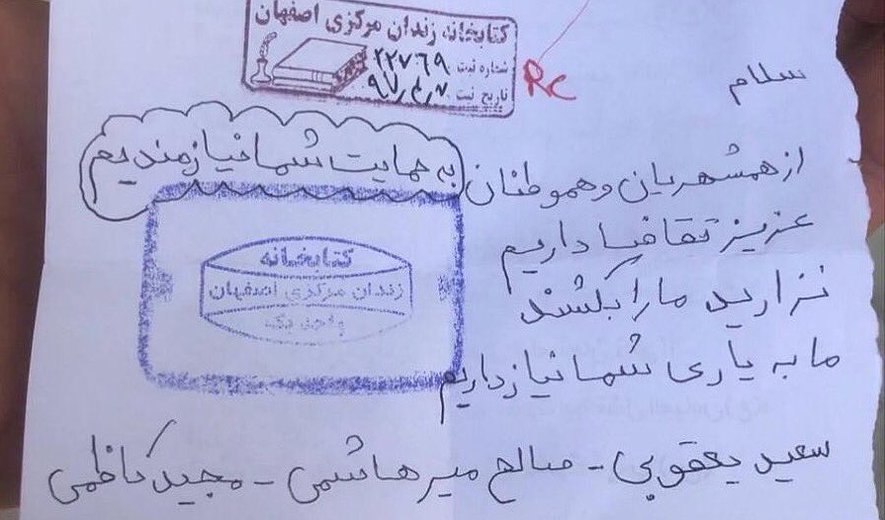 کتابخانه زندان مرکزی اصفهان
شماره ثبت ۲۲۷۶۹
تاریخ ثبت ۹۷٫۴٫۷
RC
سلام
از همشهریان و هموطنان
عزیز تقاضا داریم
نزارید ما را بکشند
ما به یاری شما نیاز داریم
به حمایت شما نیازمندیم
کتابخانه
زندان مرکزی اصفهان
واحد یک
سعید یعقوبی - صالح میرهاشمی - مجید کاظمی